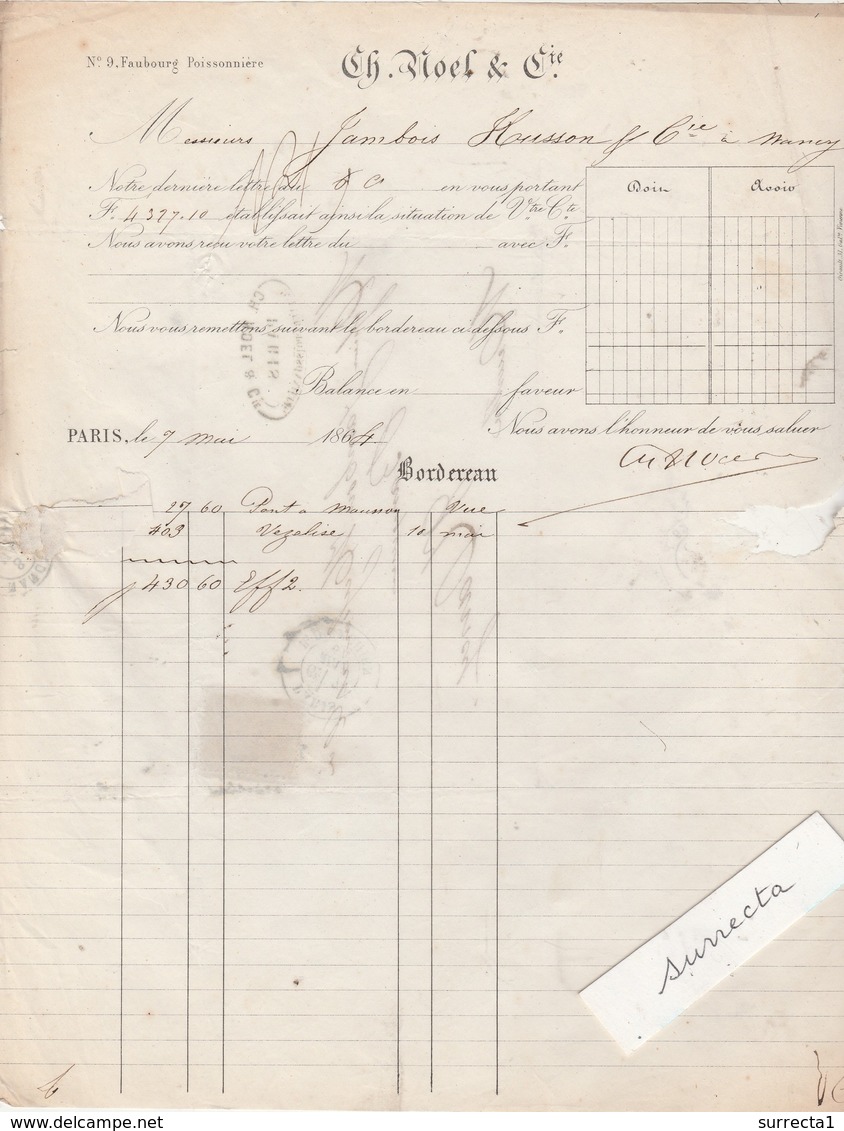 N.º 9. Faubourg Poissonnière
Ch. Noel & Cie.
Messieurs Jambois Husson & Cie à Nancy
Notre dernière lettre du en vous portant
F.s 4327.10 établissait ainsi la situation de V.tre C.te
Nous avons reçu votre lettre du avec F.s
Doit Avoir
Nous vous remettons suivant le bordereau ci dessous F.s
Balance en faveur
Nous avons l'honneur de vous saluer
PARIS, le 9 mai 1864
Bordereau
27 60 Pont a Mousson Vue
403 Vezelise 10 mai
430 60 Eff 2.
CH. NOEL & Cie
PARIS
surrecta
delcampe.net
surrecta1